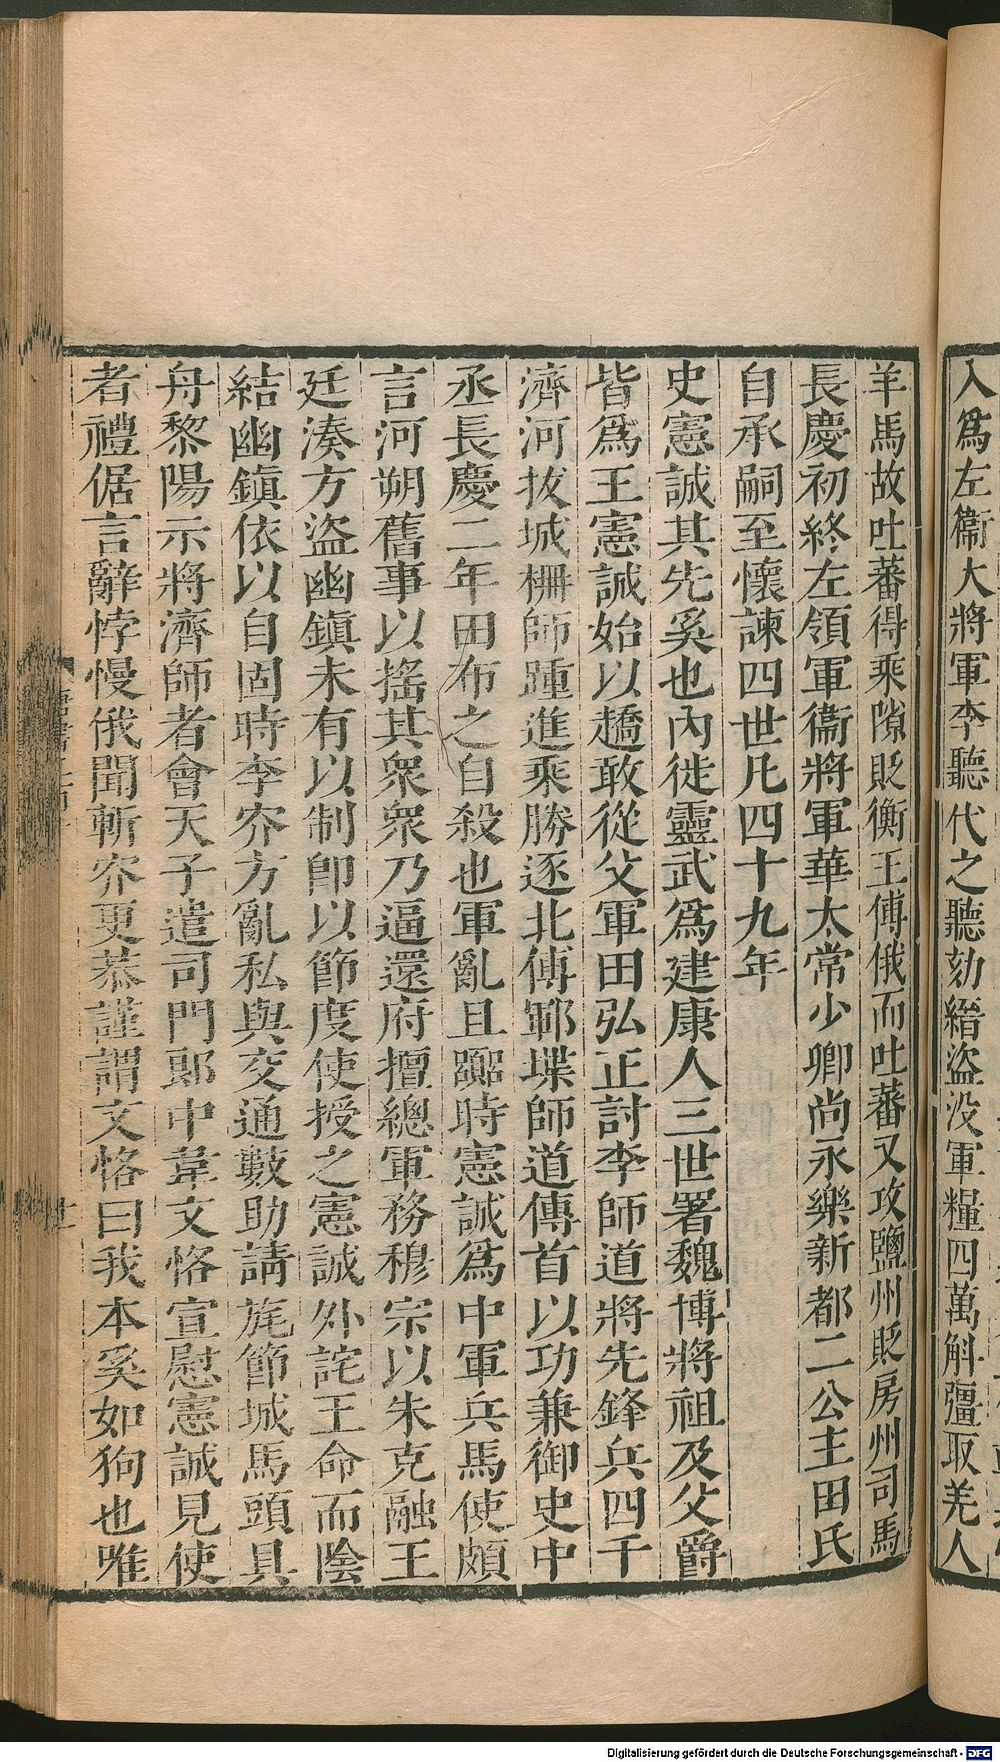 入爲左衞大將軍李聽代之聽劾縉盜没軍糧四萬斛彊取羌人
羊馬故吐蕃得乘隙貶衡王傅俄而吐蕃又攻鹽州貶房州司馬
長慶初終左領軍衞將軍華太常少卿尚永樂新都二公主田氏
自承嗣至懷諫四世凡四十九年
史憲誠其先奚也內徙靈武爲建康人三世署魏博將祖及父爵
皆爲王憲誠始以趫敢從父軍田弘正討李師道將先鋒兵四千
濟河拔城柵師踵進乘勝逐北傅鄆堞師道傳首以功兼御史中
丞長慶二年田布之自殺也軍亂且嚻時憲誠爲中軍兵馬使頗
言河朔舊事以搖其衆衆乃逼還府擅總軍務穆宗以朱克融王
廷湊方盜幽鎭未有以制卽以節度使授之憲誠外詫王命而陰
結幽鎭依以自固時李㝏方亂私與交通數助請旄節城馬頭具
舟黎陽示將濟師者會天子遣司門郞中韋文恪宣慰憲誠見使
者禮倨言辭悖慢俄聞斬㝏更恭謹謂文恪曰我本奚如狗也唯
Digitalisierung gefördert durch die Deutsche Forschungsgemeinschaft - DFG